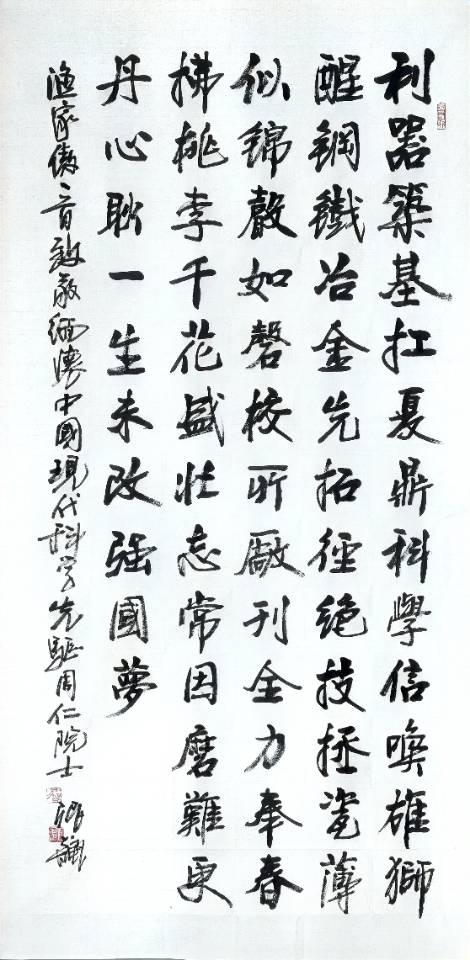 利器築基扛夏鼎科學信喚雄獅
醒鋼鐵冶金先拓徑絕技拯瓷薄
似錦聲如磬校所廠刊全力奉春
拂桃李千花盛壯志常因磨難更
丹心耿一生未改强國夢
渔家傲一首致敬缅懷中國現代科学先驅周仁院士